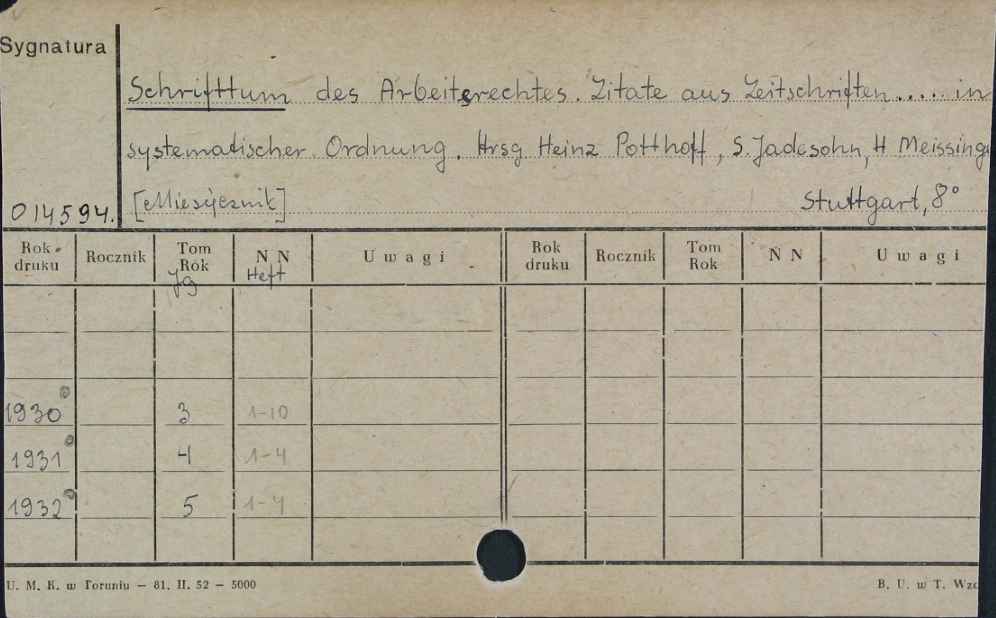 Sygnatura
Schrifttum des Arbeitsrechtes. Zitate aus Zeitschriften..... in
systematischer Ordnung. Hrsg Heinz Potthoff, S. Jadesohn, H Meissing
014594. [Miesięcznik] Stuttgart, 8°
Rok druku Rocznik Tom Rok Jg N N Heft Uwagi Rok druku Rocznik Tom Rok N N Uwagi
1930 3 1-10
1931 4 1-4
1932 5 1-4
U. M. K. w Toruniu — 81. II. 52 — 5000 B. U. w T.